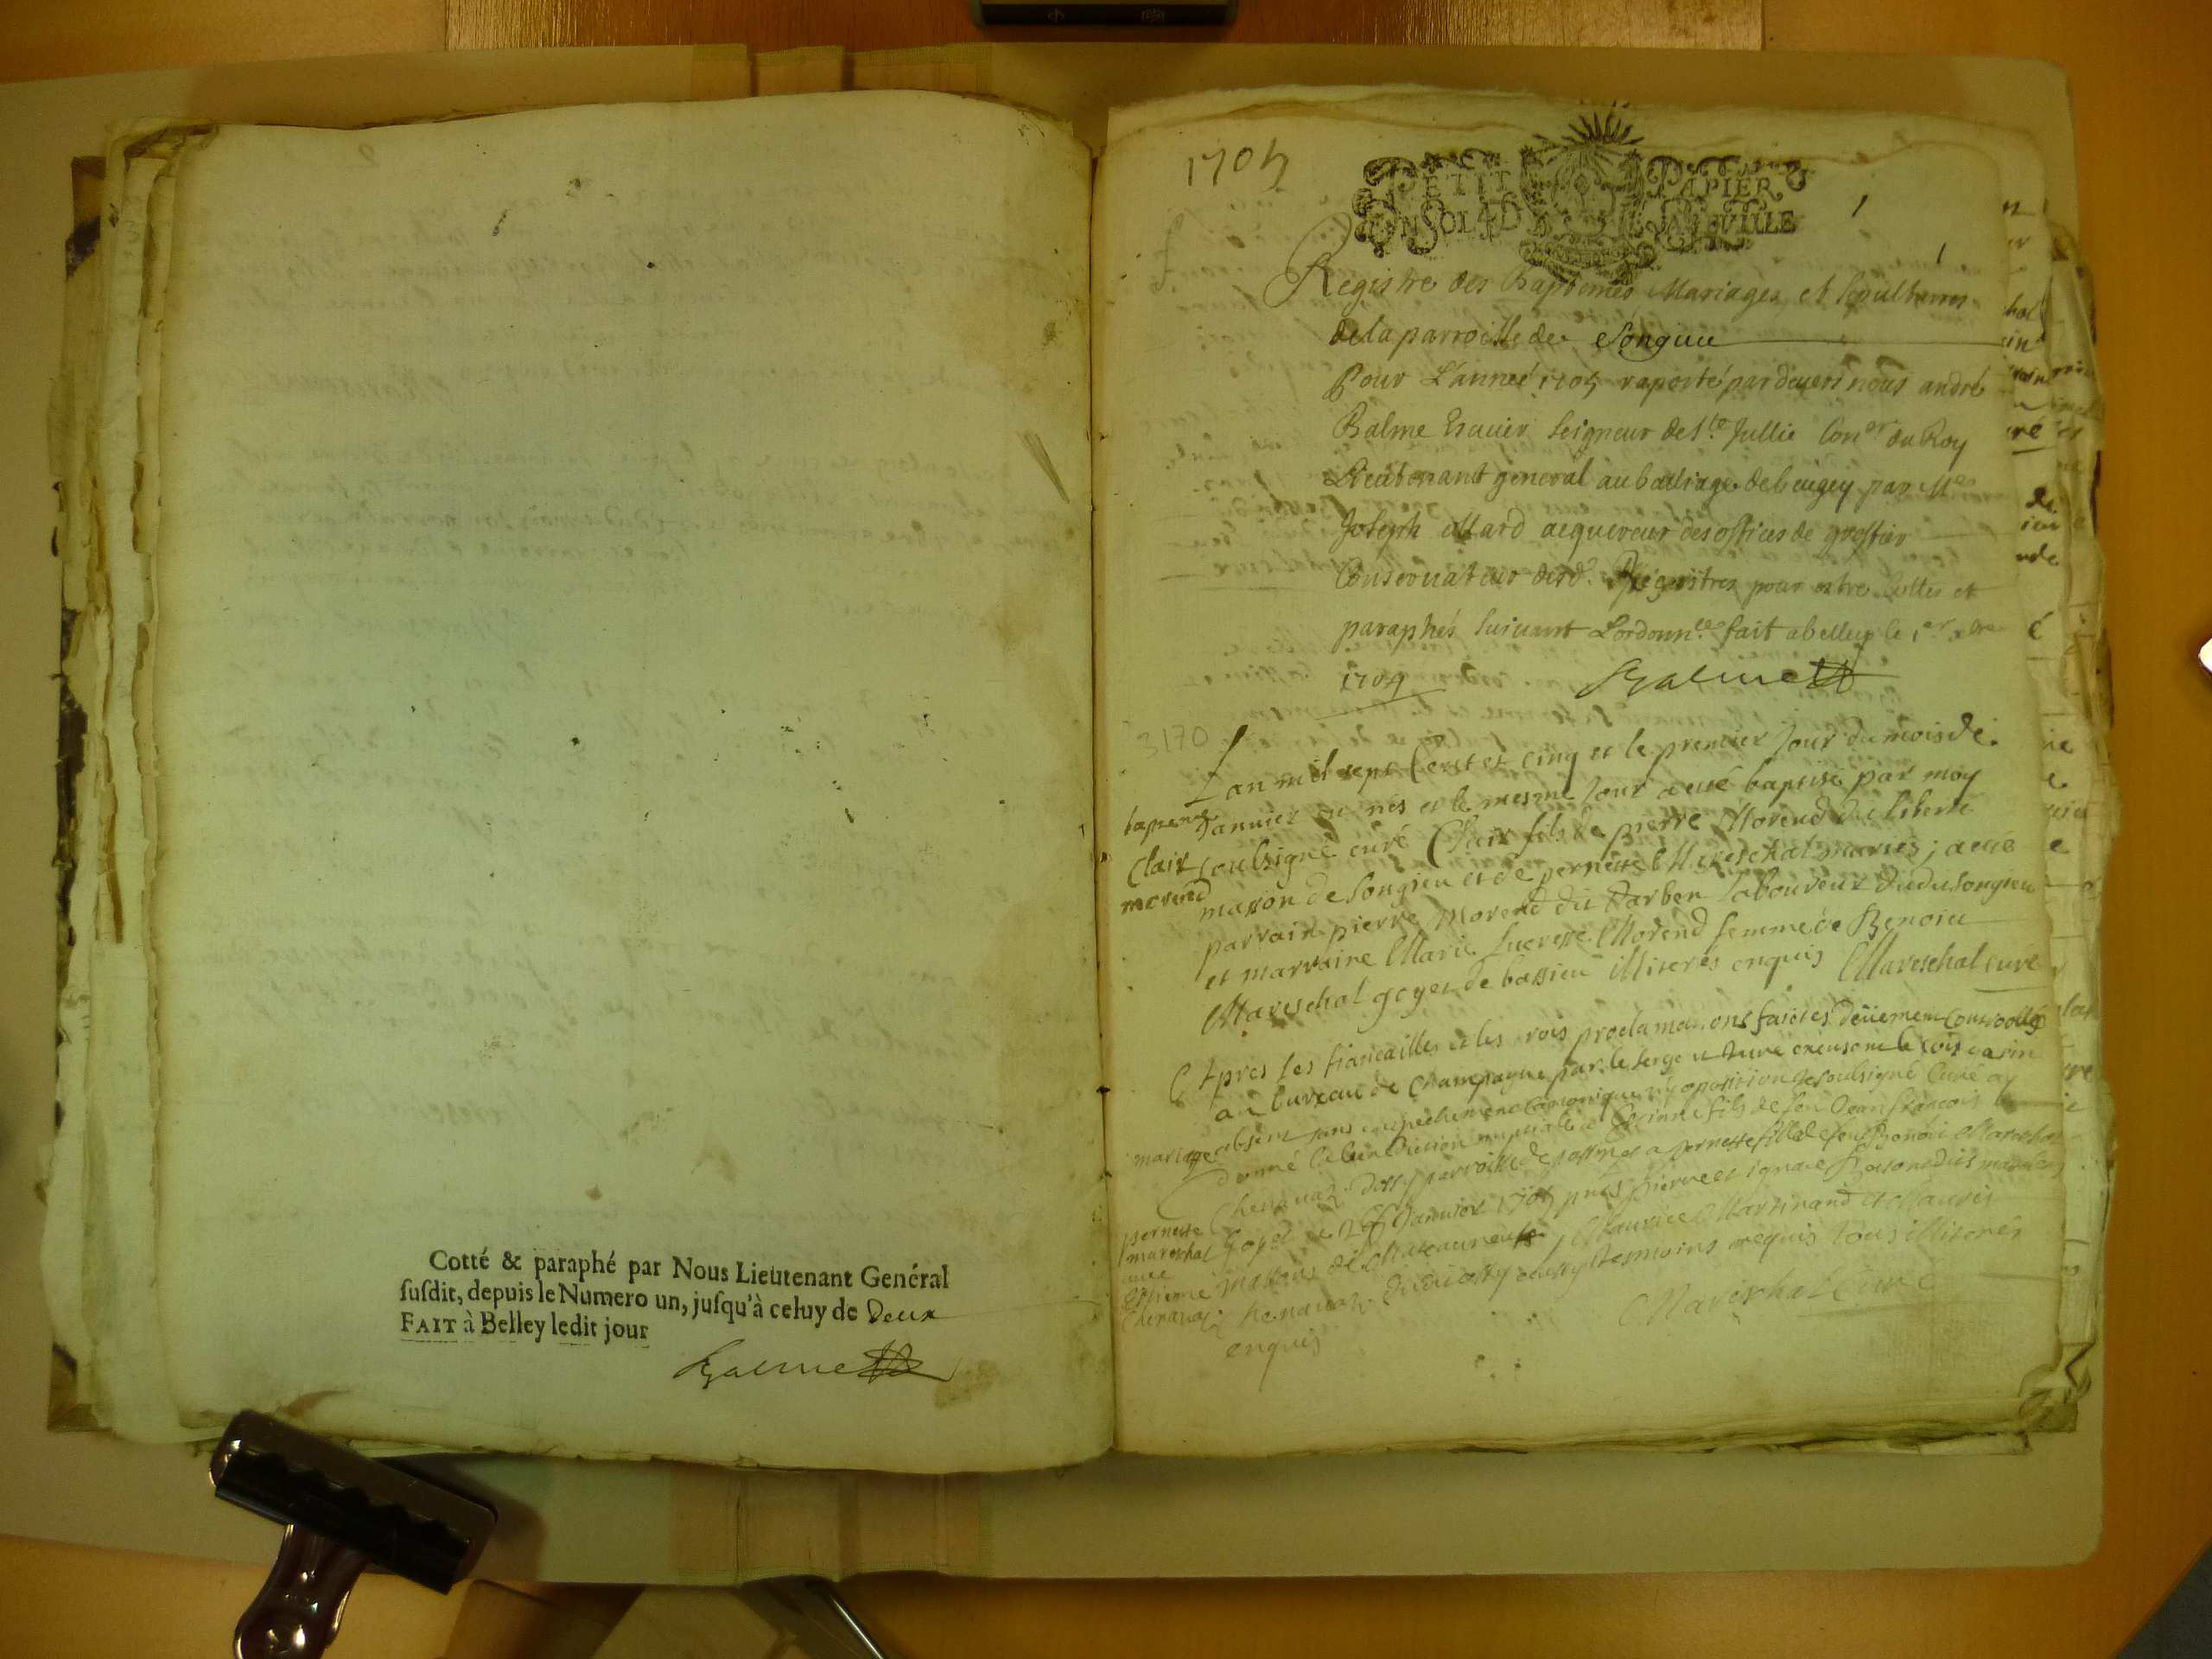 Cotté & paraphé par Nous Lieutenant Genéral
susdit, depuis le Numero un, jusqu'à celuy de deux
FAIT à Belley ledit jour
Balme
1705
PETIT PAPIER
UN SOL 4 D LA FEUILLE
1
1
Registre des Baptemes Mariages et Sepultures
de la parroisse de Songieu
Pour L'anneé 1705 raporté pardevers nous andré
Balme Escuier Seigneur de Ste Jullie Coner du Roy
Lieutenant general au bailliage de beugey par Me
Joseph allard acquereur des offices de greffier
Conservateur desd. Registres pour estre Cottés et
paraphés suivant Lordonnce fait a belley le 1er xbre
1704 Balme
3170
Lan mil sept Cent et cinq et le premier Jour du mois de
Janvier est nés et le mesme Jour a eté baptisé par moy
soubsigné curé Clair fils de pierre Morend dit liberté
masson de Songieu et de pernette Mareschal mariés ; a eté
parrain pierre Morend dit Darben laboureur dudit Songieu
et marraine Marie Morend femme de Benoict
Mareschal goyet de bassieu illiterés enquis Mareschal curé
bapteme
Clair
morend
Apres les fiancailles et les trois proclamations faictes deüement controollé
au bureau de Champagne par le
absent sans empechement canonique ny oposition Je soubsigné Curé ay
donné la benediction nuptiale a fils de feu Jean françois
parroisse de a pernette fille de feu Benoict Mareschal
Goyet le 26 Janvier 1705 pnts pierre et ignace
massons de chateauneuf, Maurice Martinand et Mauris
tesmoins requis tous illiterés
enquis Mareschal Curé
mariage
pernette
mareschal